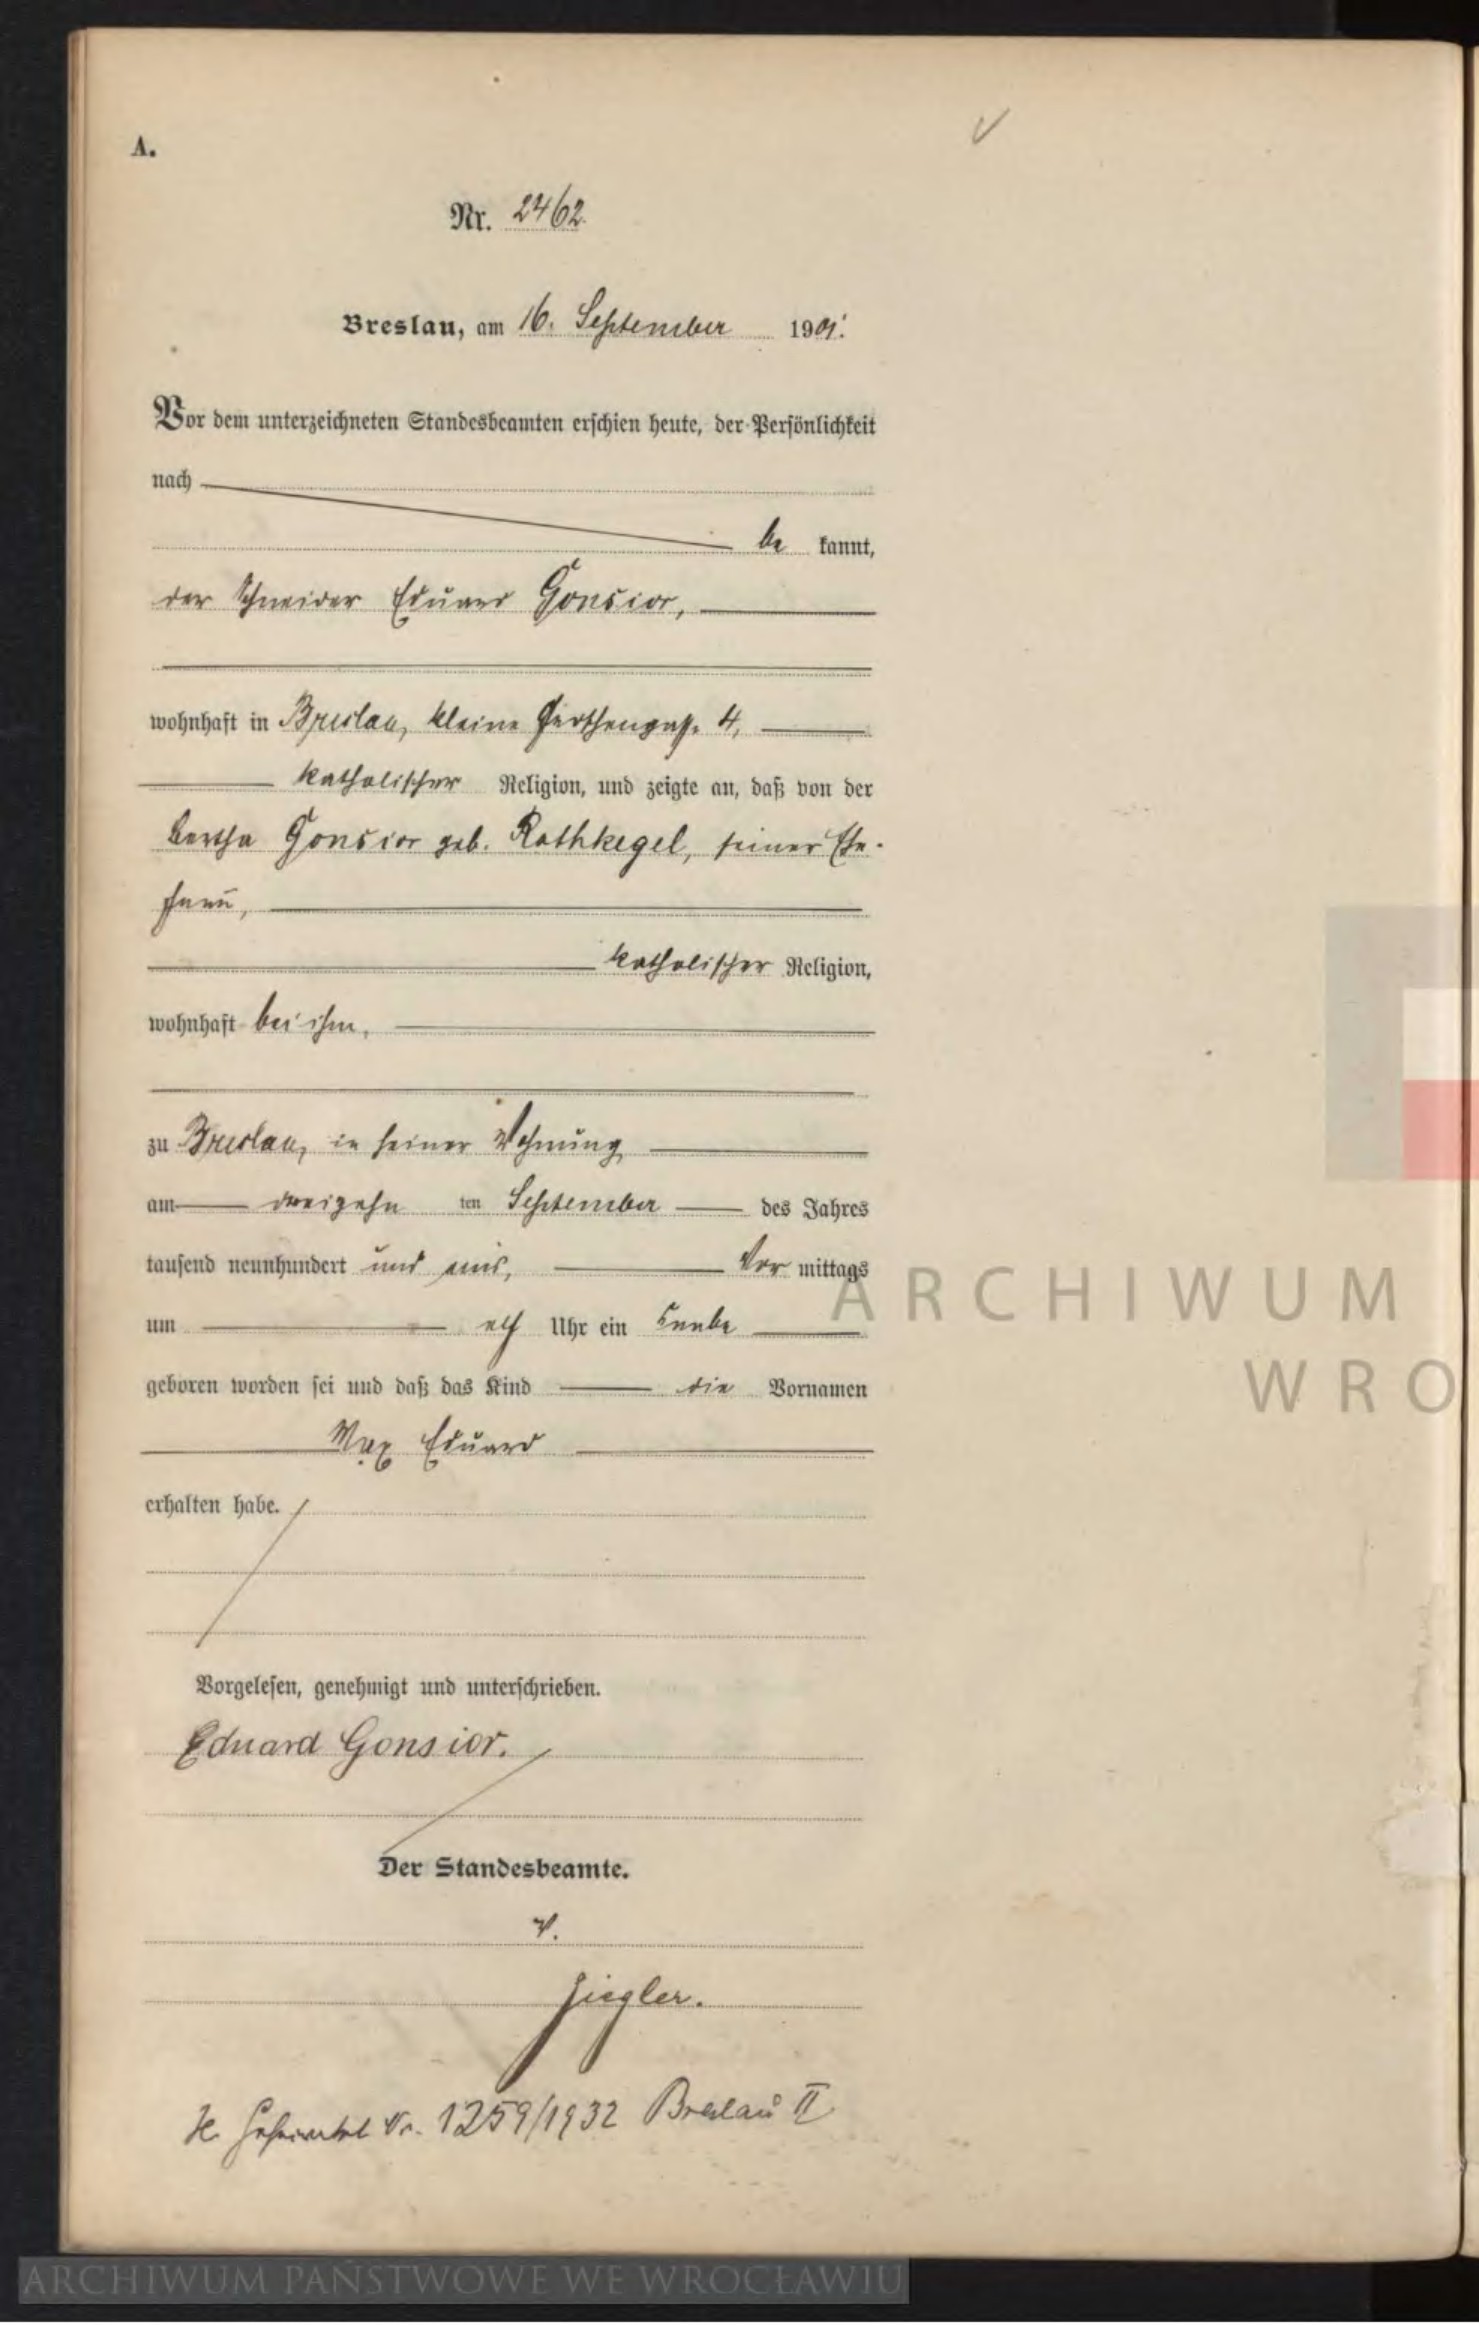 A.
Nr. 2462.
Breslau, am 16. September 1901.
Vor dem unterzeichneten Standesbeamten erschien heute, der Persönlichkeit
nach
be kannt,
der Schneider Eduard Gonsior,
wohnhaft in Breslau, kleine 4,
katholischer Religion, und zeigte an, daß von der
Bertha Gonsior geb. Rothkegel, seiner Ehe-
frau,
katholischer Religion,
wohnhaft bei ihm,
zu Breslau, in seiner Wohnung
am dreizehn ten September des Jahres
tausend neunhundert und eins, Vor mittags
um elf Uhr ein Knabe
geboren worden sei und daß das Kind die Vornamen
Max Eduard
erhalten habe.
Vorgelesen, genehmigt und unterschrieben.
Eduard Gonsior.
Der Standesbeamte.
V.
Ziegler.
Nr. 1259/1932 Breslau II
ARCHIWUM
WRO
ARCHIWUM PAŃSTWOWE WE WROCŁAWIU